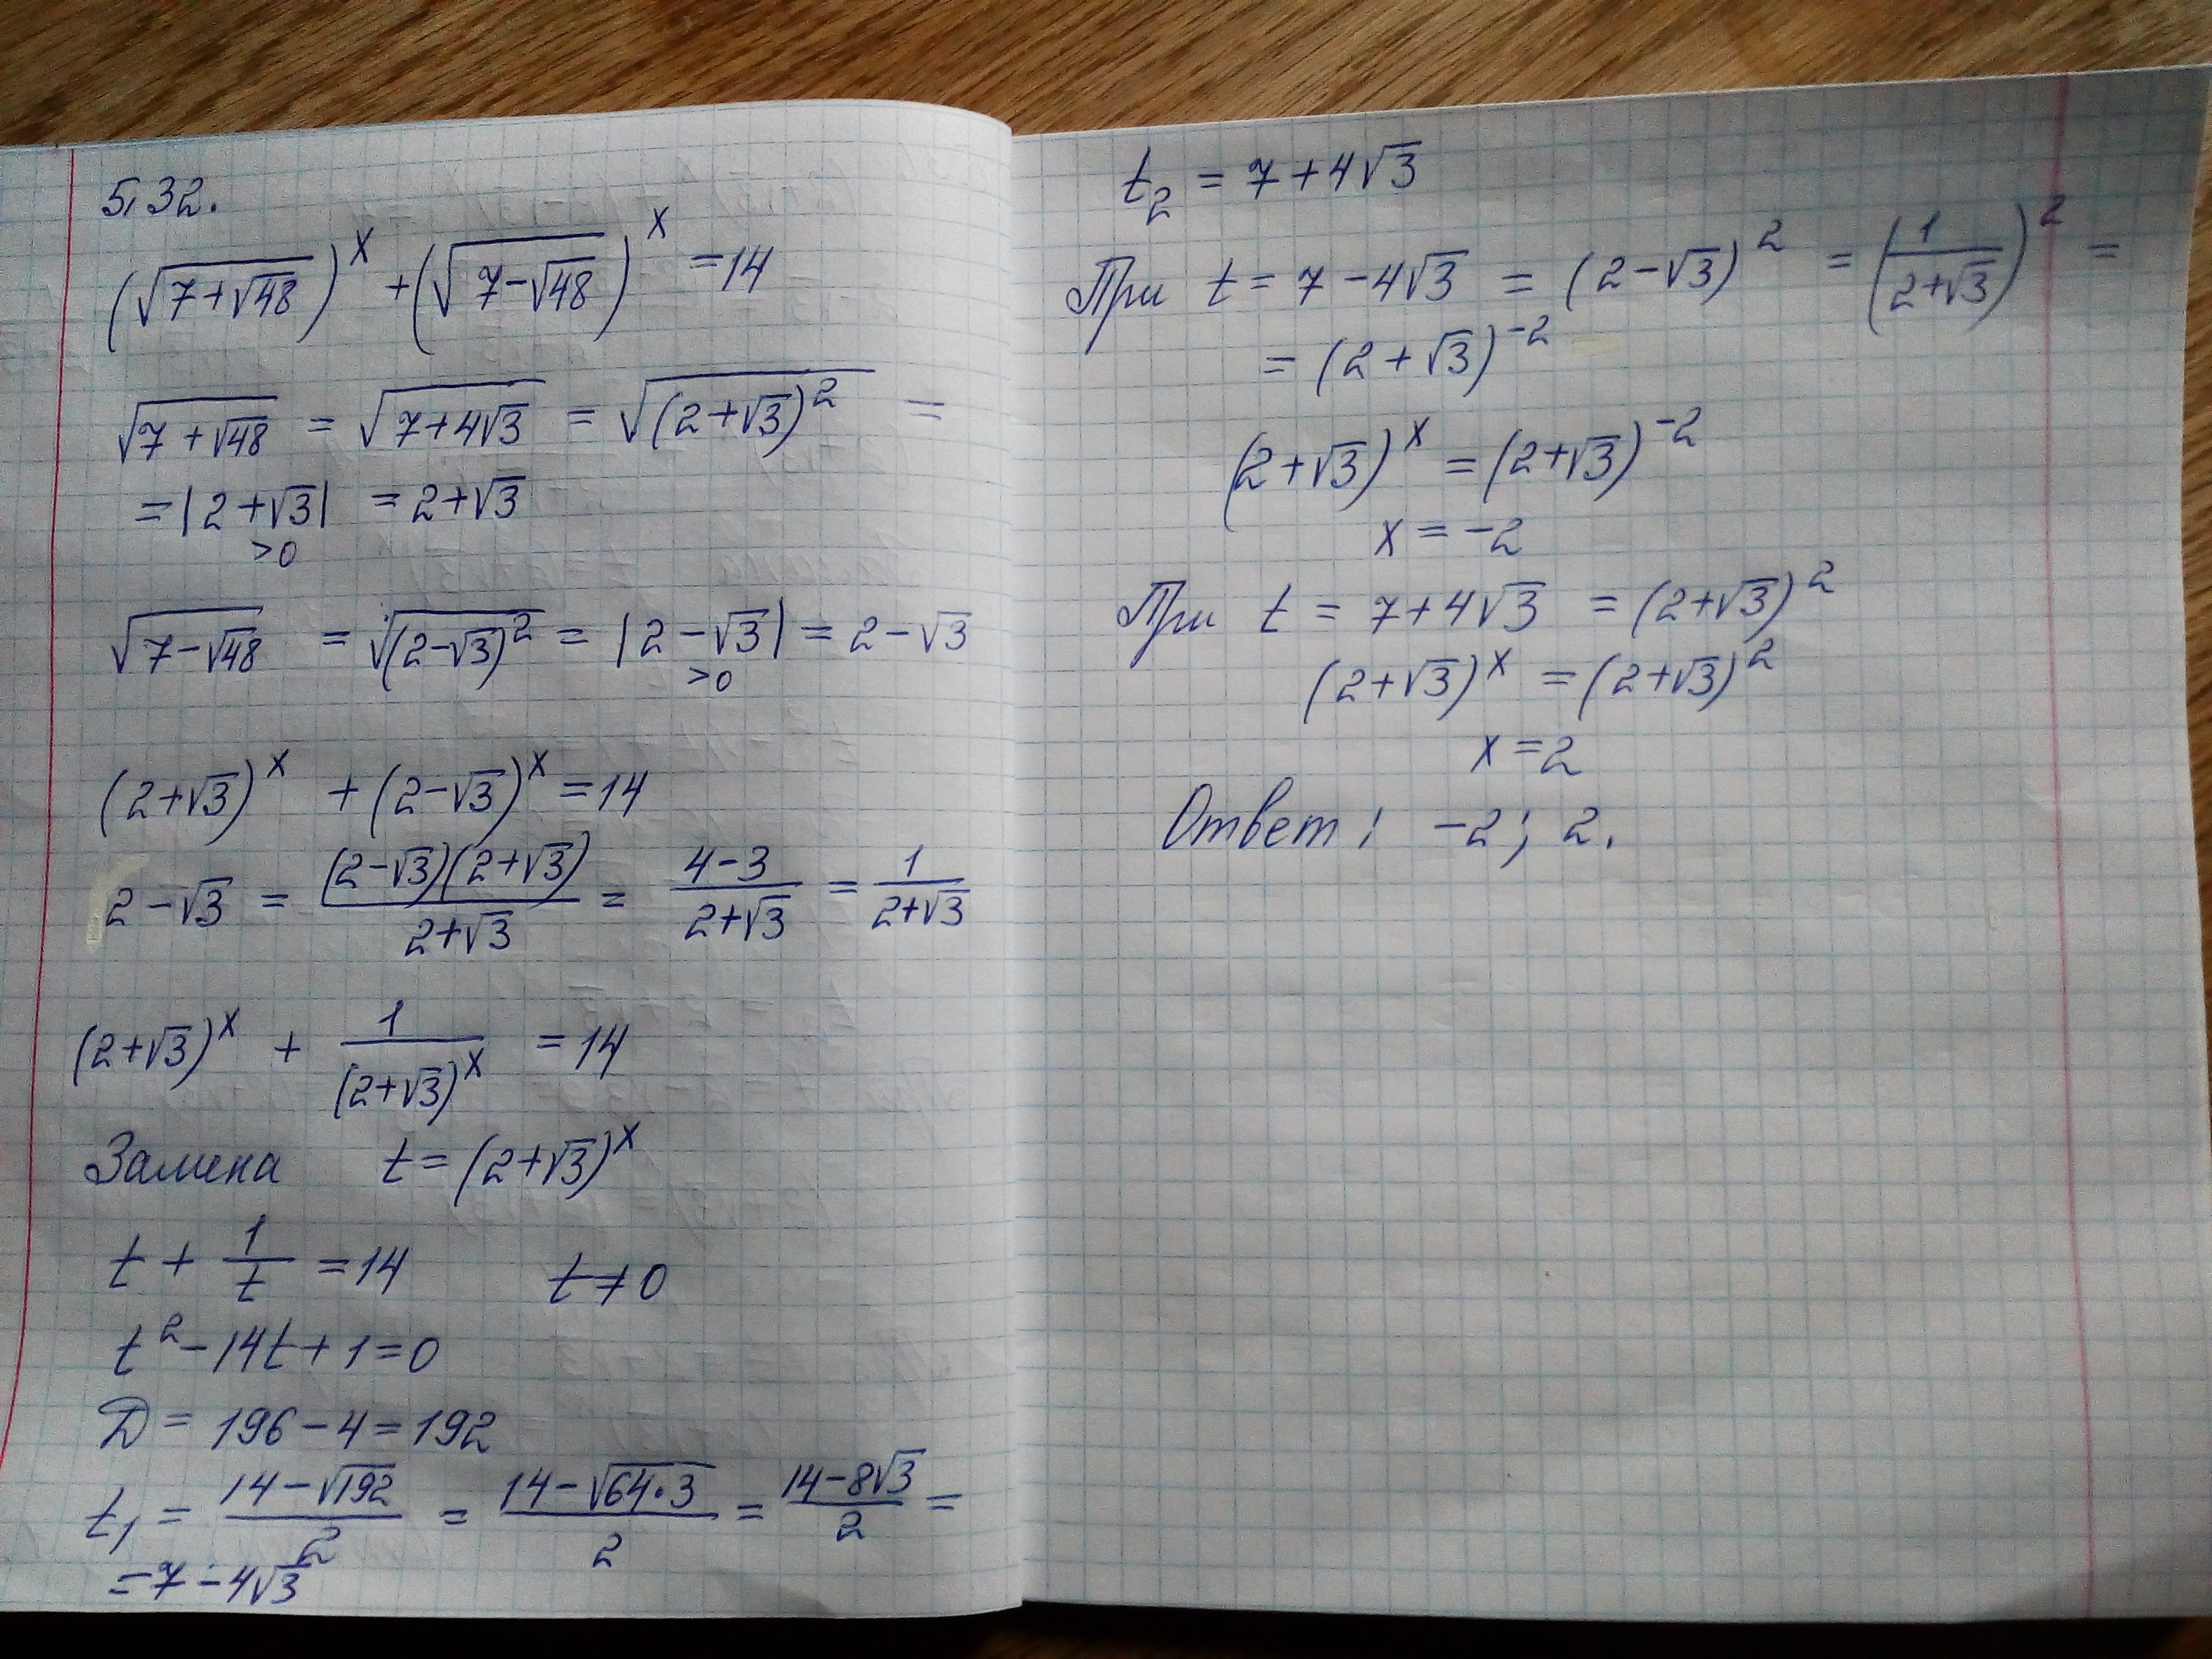 5,32.
(√(7+√48))^x + (√(7-√48))^x = 14
√(7+√48) = √(7+4√3) = √((2+√3)^2) =
= |2+√3| = 2+√3
>0
√(7-√48) = √((2-√3)^2) = |2-√3| = 2-√3
>0
(2+√3)^x + (2-√3)^x = 14
2-√3 = (2-√3)(2+√3)/(2+√3) = (4-3)/(2+√3) = 1/(2+√3)
(2+√3)^x + 1/(2+√3)^x = 14
Замена t = (2+√3)^x
t + 1/t = 14 t ≠ 0
t^2 - 14t + 1 = 0
D = 196 - 4 = 192
t₁ = (14-√192)/2 = (14-√(64·3))/2 = (14-8√3)/2 =
= 7 - 4√3
t₂ = 7+4√3
При t = 7-4√3 = (2-√3)^2 = (1/(2+√3))^2 =
= (2+√3)^-2
(2+√3)^x = (2+√3)^-2
x = -2
При t = 7+4√3 = (2+√3)^2
(2+√3)^x = (2+√3)^2
x = 2
Ответ: -2; 2.